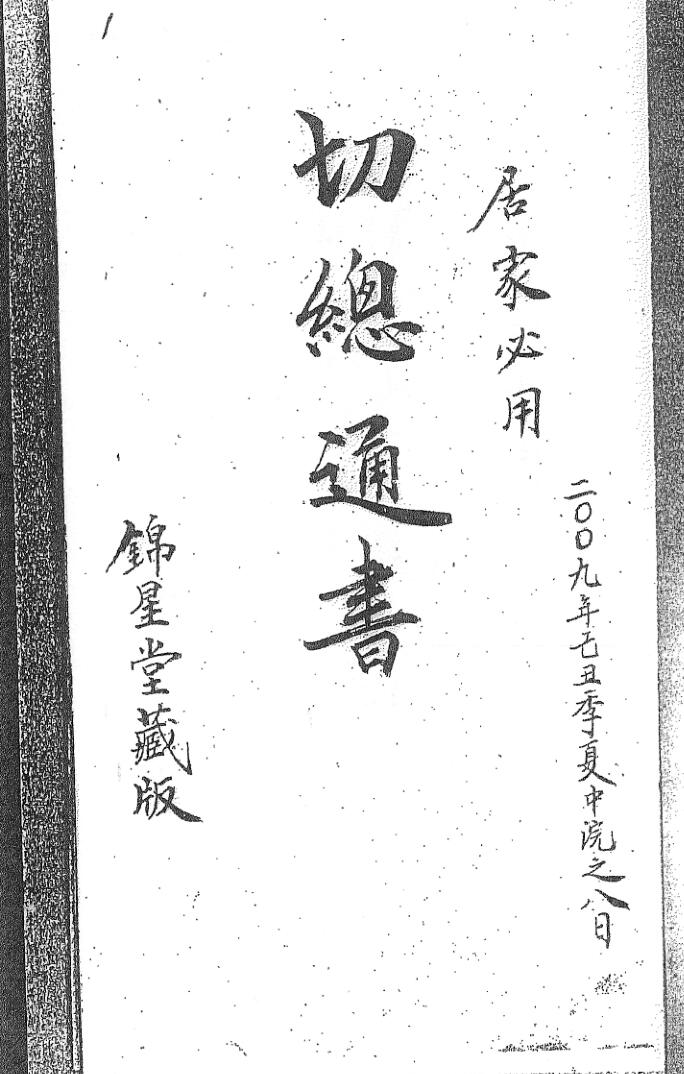 二〇〇九年己丑季夏中浣之八日
居家必用
切總通書
錦星堂藏版
1